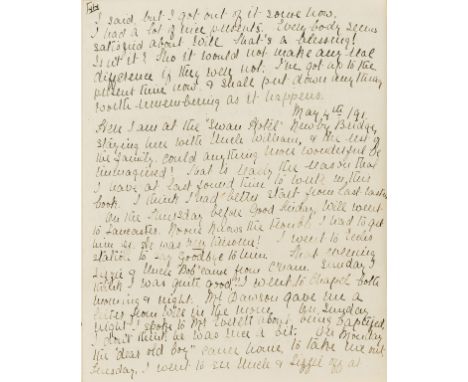 I said, but I got out of it some how.
I had a lot of nice presents. Every body seems
satisfied about Will. That's a blessing!
Isn't it? Tho it would not make any real
difference if they were not. I've got up to the
present time now, & shall put down anything
worth remembering as it happens.
May 4th /91
Here I am at the "Swan Hotel" Newby Bridge,
staying here with Uncle William, & the rest of
the family, could anything more wonderful be
imagined! That is really the reason that
I have at last found time to write in this
book. I think I had better start from last Easter
On the Thursday before Good Friday Will went
to Lancaster. No one knows the trouble I had to get
him so. He was I went to Eccles
station to say goodbye to him. That evening
Lizzie & Uncle Bob came from Crewe. Sunday I
think I was quite good! I went to Chapel both
morning & night. Mr Dawson gave me a
letter from Will in the morn. On Sunday
night I spoke to Mr Everett about being Baptized,
I don't think he was me a bit. On Monday
the "dear old boy" came home, to take me out
Tuesday. I went to see Uncle & Lizzie off at